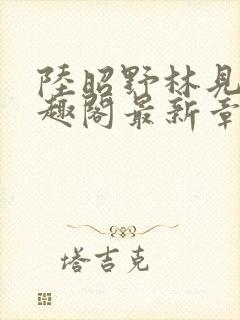 陸昭野林見
趣閣最新章
塔吉克